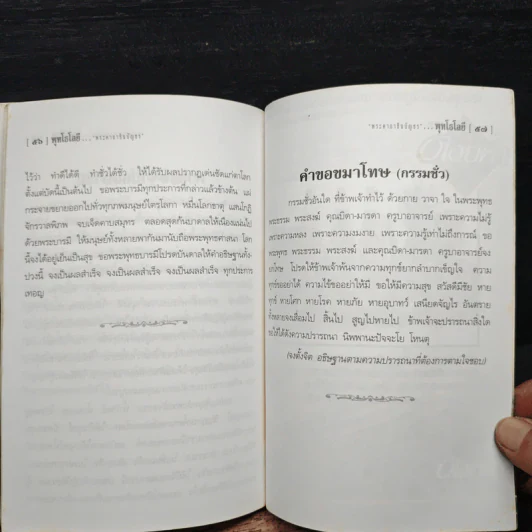 | ๕๖ | พุทโธโลยี "พระคาถาชินบัญชร"...
ไว้ว่า ทำดีได้ดี ทำชั่วได้ชั่ว ให้ได้รับผลปรากฏเด่นชัดแก่ตาโลก
ตั้งแต่บัดนี้เป็นต้นไป ขอพระบารมีทุกประการที่กล่าวแล้วข้างต้น แผ่
กระจายขยายออกไปทั่วทุกภพมนุษย์ไตรโลกา หมื่นโลกธาตุ แสนโกฏิ
จักรวาลพิภพ จบเจ็ดคาบสมุทร ตลอดสุดก้นบาดาลให้เนืองแน่นไป
ด้วยพระบารมี ให้มนุษย์ทั้งหลายพากันมานับถือพระพุทธศาสนา โลก
นี้จงได้อยู่เป็นสุข ขอพระพุทธบารมีโปรดบันดาลให้คำอธิษฐานทั้ง
ปวงนี้ จงเป็นผลสำเร็จ จงเป็นผลสำเร็จ จงเป็นผลสำเร็จ ทุกประการ
เทอญ
"พระคาถาชินบัญชร"... พุทโธโลยี | ๕๗ |
คำขอขมาโทษ (กรรมชั่ว)
กรรมชั่วอันใด ที่ข้าพเจ้าทำไว้ ด้วยกาย วาจา ใจ ในพระพุทธ
พระธรรม พระสงฆ์ คุณบิดา-มารดา ครูบาอาจารย์ เพราะความไม่รู้
เพราะความหลง เพราะความงมงาย เพราะความรู้เท่าไม่ถึงการณ์ ขอ
พระพุทธ พระธรรม พระสงฆ์ และคุณบิดา-มารดา ครูบาอาจารย์จง
โปรดให้ข้าพเจ้าพ้นจากความทุกข์ยากลำบากเข็ญใจ ความ
ทุกข์ขออย่าได้ ความไข้ขออย่าให้มี ขอให้มีความสุข สวัสดีมีชัย หาย
ทุกข์ หายโศก หายโรค หายภัย หายอุบาทว์ เสนียดจัญไร อันตราย
ทั้งหลายจงเสื่อมไป สิ้นไป สูญไปหายไป ข้าพเจ้าจะปรารถนาสิ่งใด
ขอให้ได้ดังความปรารถนา นิพพานะปัจจะโย โหนตุ
(จงตั้งจิต อธิษฐานตามความปรารถนาที่ต้องการตามใจชอบ)